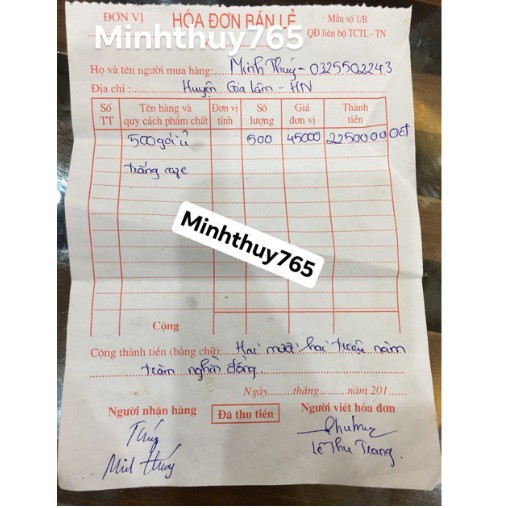 ĐƠN VỊ HÓA ĐƠN BÁN LẺ Mẫu số 1/B
Minhthuy765 QĐ liên bộ TCTL - TN
Họ và tên người mua hàng: Minh Thúy - 0325502243
Địa chỉ: Huyện Gia Lâm - HN
Số TT Tên hàng và quy cách phẩm chất Đơn vị tính Số lượng Giá đơn vị Thành tiền
500 gói ủ 500 45000 22500000đ
trắng
Minhthuy765
Cộng
Cộng thành tiền (bằng chữ): Hai mươi hai triệu năm
trăm nghìn đồng
Ngày tháng năm 201
Người nhận hàng Đã thu tiền Người viết hóa đơn
Thúy
Minh Thúy Lê Thu Trang.